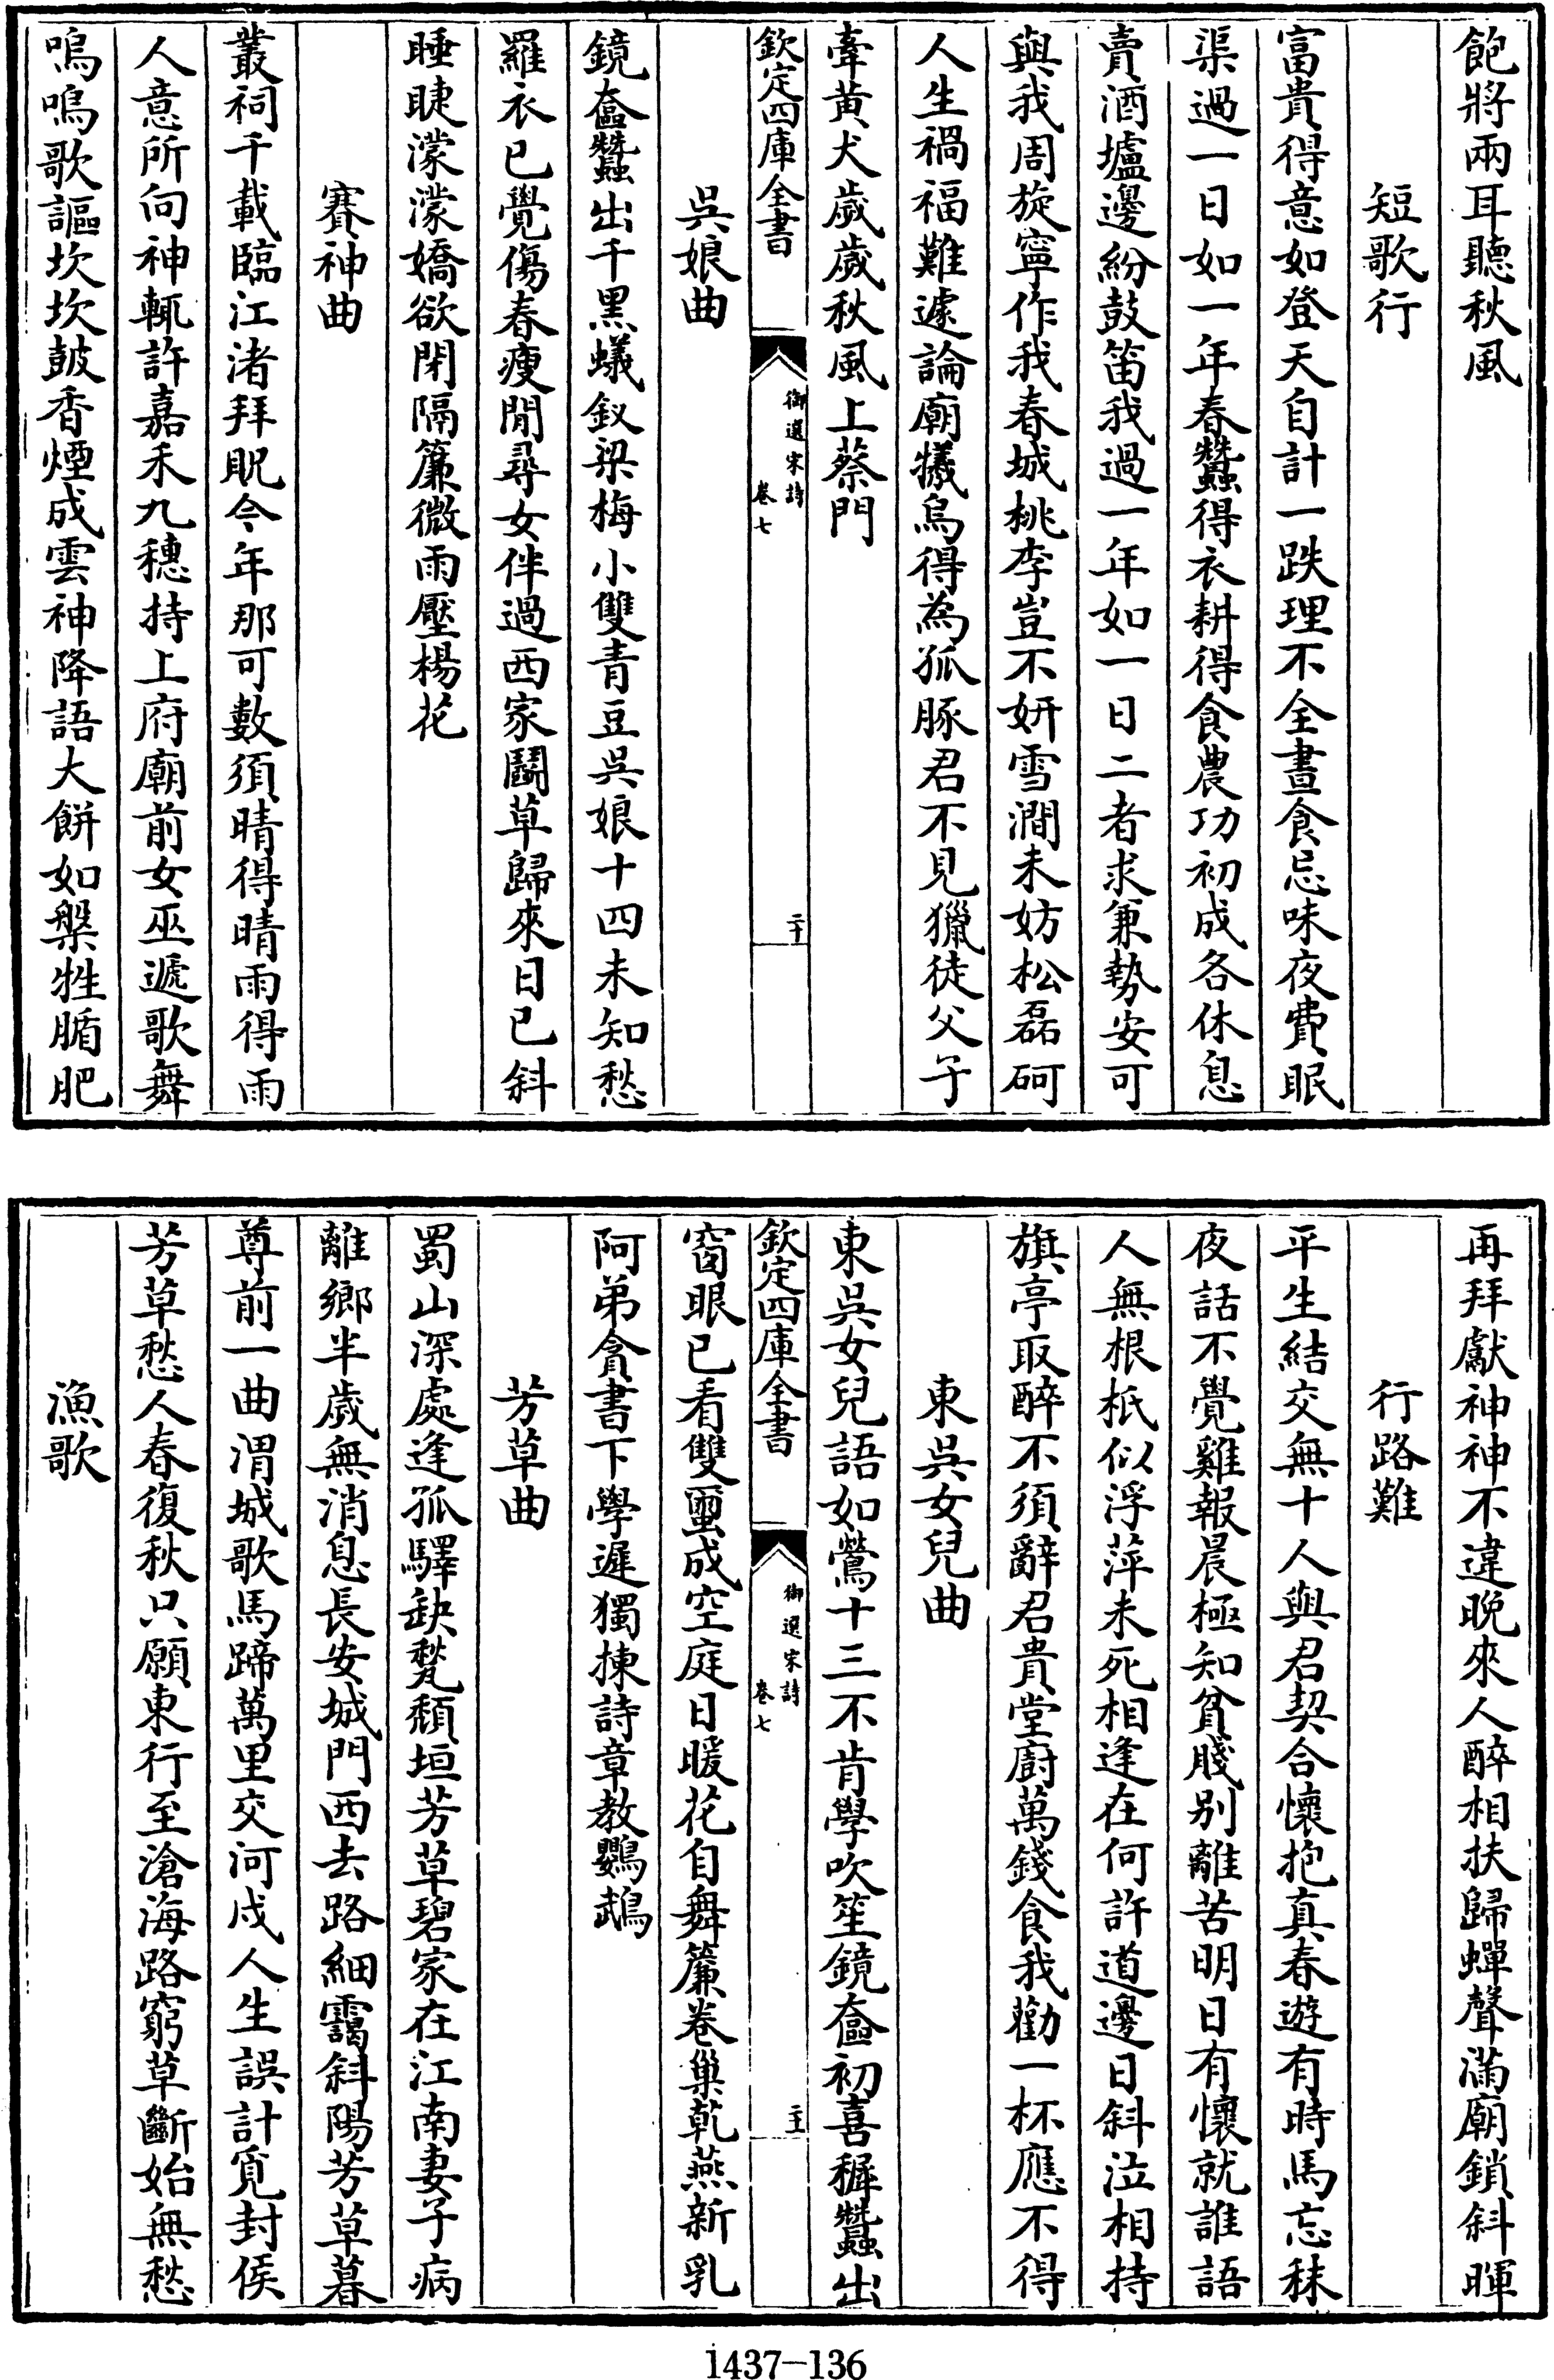 飽將兩耳聽秋風
短歌行
富貴得意如登天自計一跌理不全晝食忘味夜費眠
渠過一日如一年春蠶得衣耕得食農功初成各休息
賣酒壚邊紛鼓笛我過一年如一日二者求兼勢安可
與我周旋寧作我春城桃李豈不妍雪澗未妨松磊砢
人生禍福難遽論廟犧烏得為孤豚君不見獵徒父子
牽黃犬歲歲秋風上蔡門
欽定四庫全書
御選宋詩
卷七
二十
吳娘曲
鏡奩蠶出千黑蟻釵梁梅小雙青豆吳娘十四未知愁
羅衣已覺傷春瘦閒尋女伴過西家鬬草歸來日已斜
睡睫濛濛嬌欲閉隔簾微雨壓楊花
賽神曲
叢祠千載臨江渚拜貺今年那可數須晴得晴雨得雨
人意所向神輒許嘉禾九穗持上府廟前女巫遞歌舞
嗚嗚歌謳坎坎鼓香煙成雲神降語大餅如槃牲腯肥
再拜獻神神不違晚來人醉相扶歸蟬聲滿廟鎖斜暉
行路難
平生結交無十人與君契合懷抱真春遊有時馬忘秣
夜話不覺雞報晨極知貧賤别離苦明日有懷就誰語
人無根柢似浮萍未死相逢在何許道邊日斜泣相持
旗亭取醉不須辭君貴堂廚萬錢食我勸一杯應不得
東吳女兒曲
東吳女兒語如鶯十三不肯學吹笙鏡奩初喜穉蠶出
欽定四庫全書
御選宋詩
卷七
二十一
窗眼已看雙蠒成空庭日暖花自舞簾卷巢乾燕新乳
阿弟貪書下學遲獨揀詩章教鸚鵡
芳草曲
蜀山深處逢孤驛缺甃頽垣芳草碧家在江南妻子病
離鄉半歲無消息長安城門西去路細靄斜陽芳草暮
尊前一曲渭城歌馬蹄萬里交河戍人生誤計覓封侯
芳草愁人春復秋只願東行至滄海路窮草斷始無愁
漁歌
1437-136